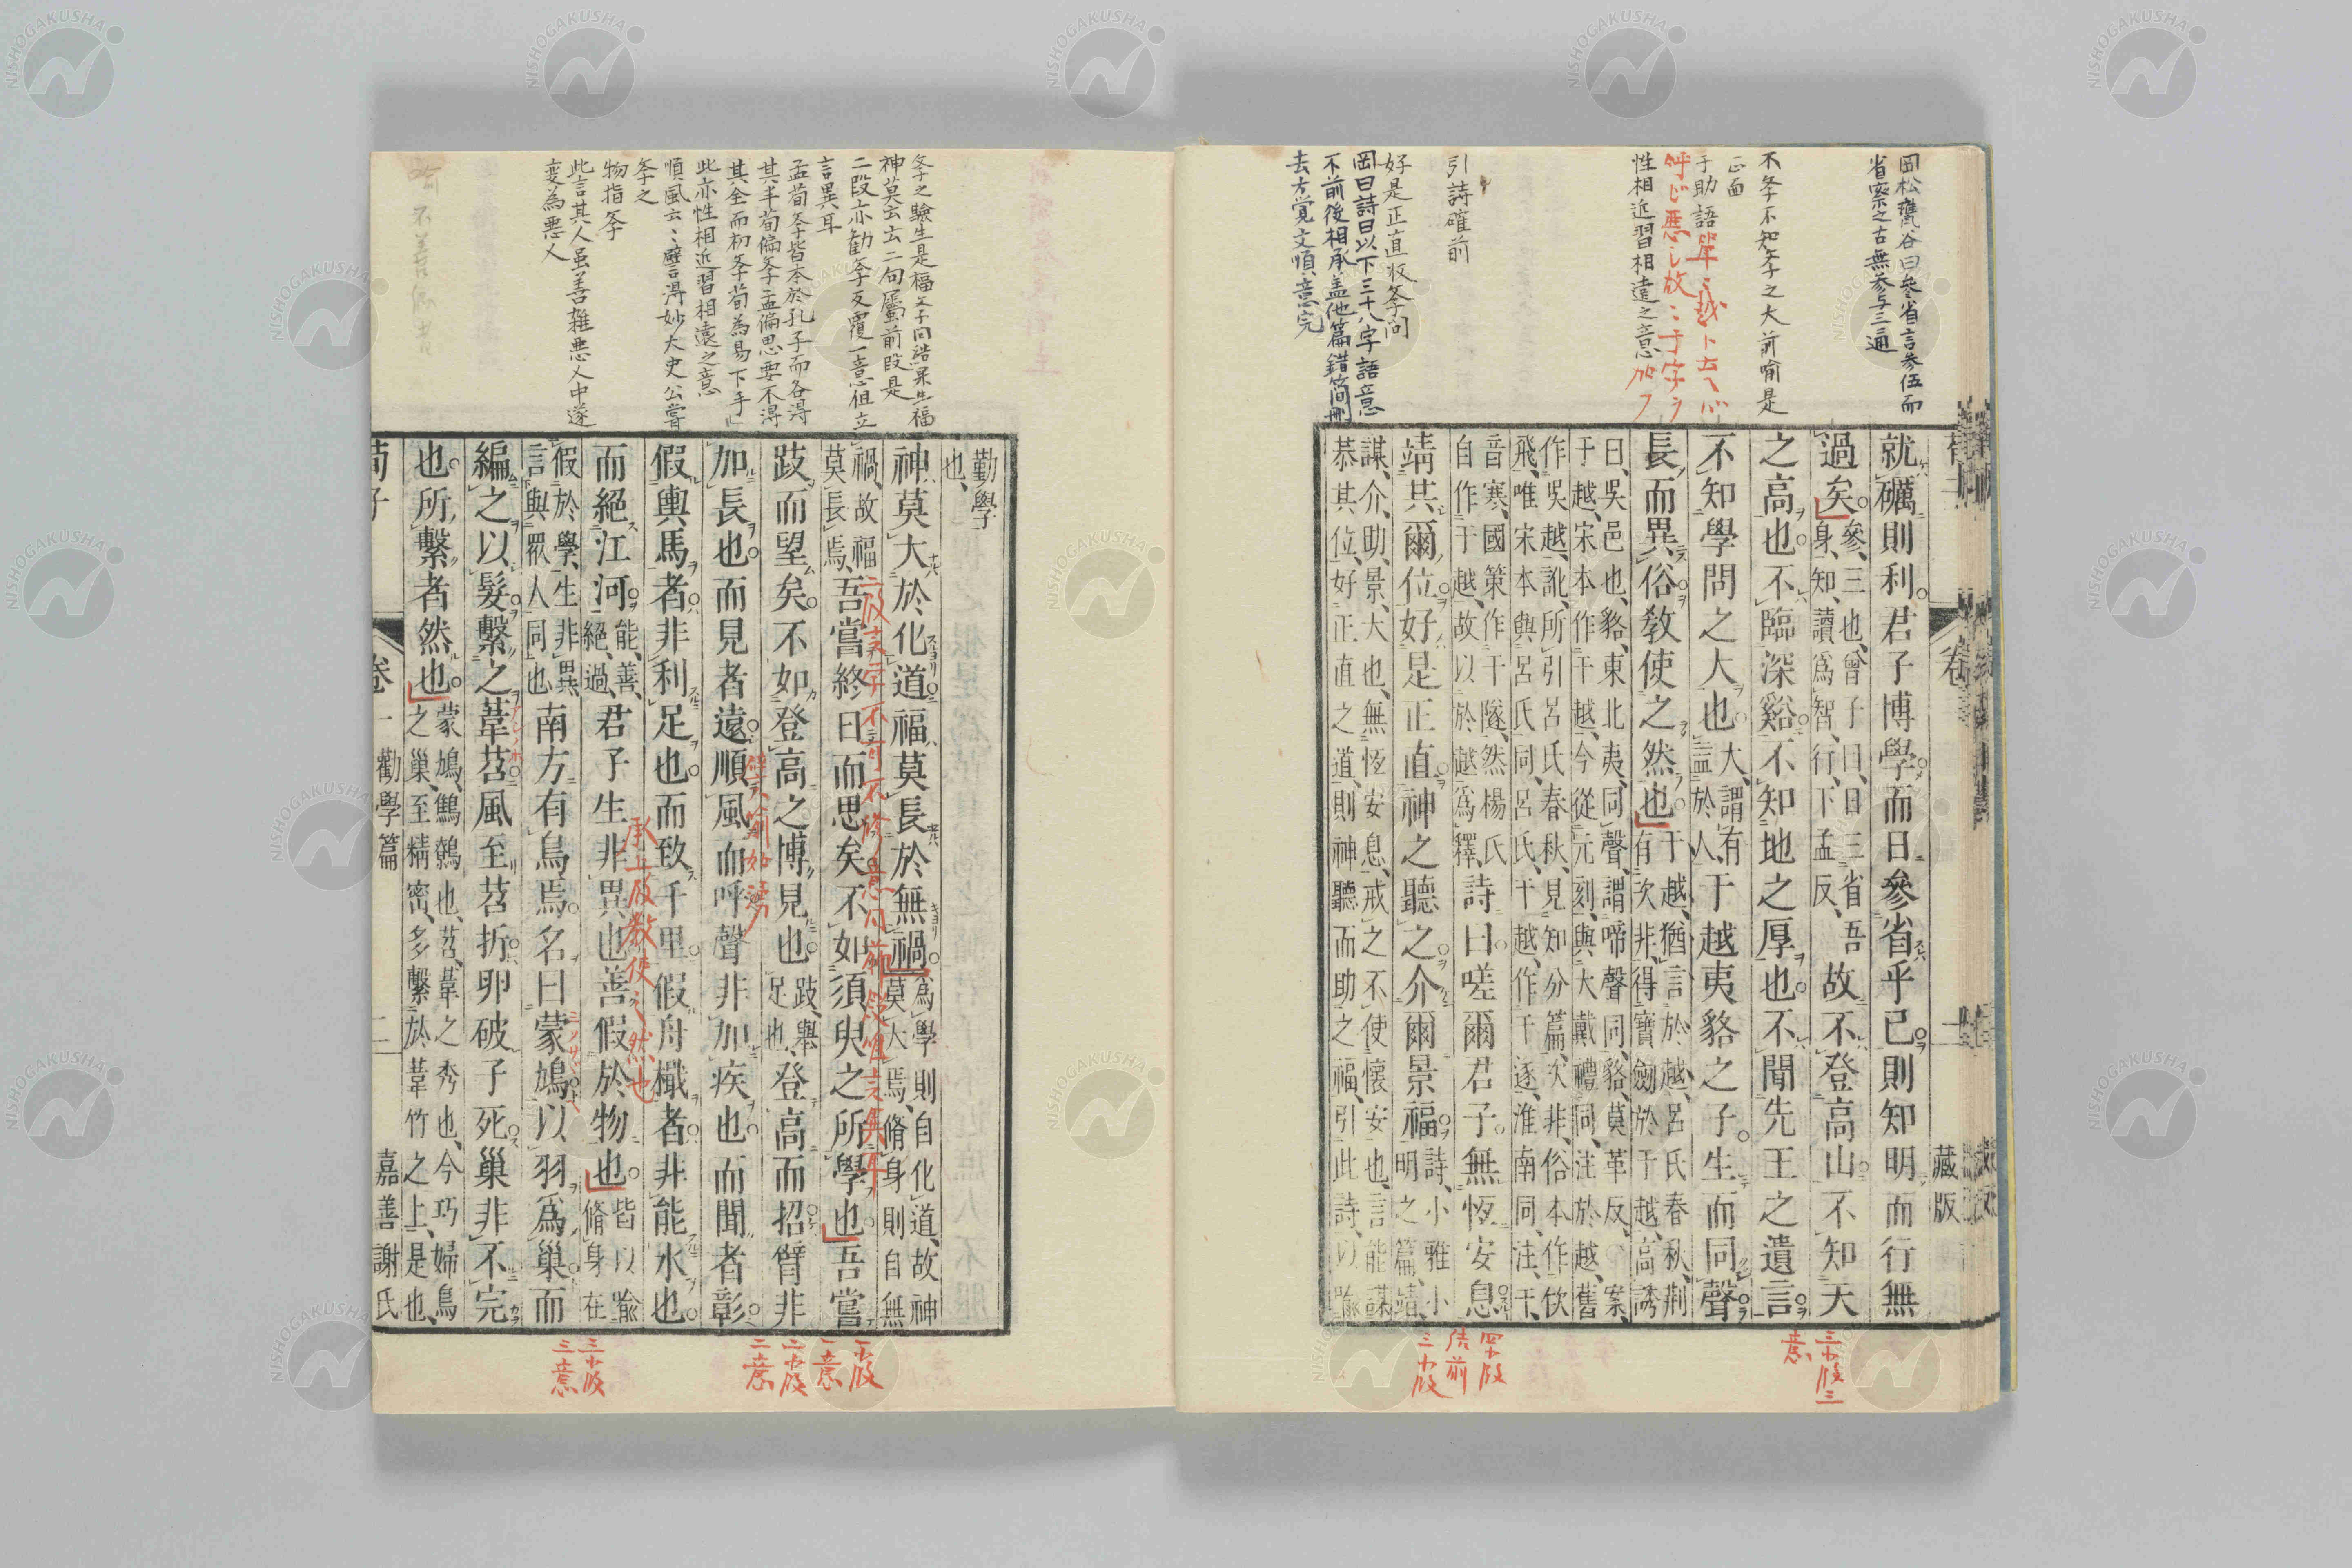 岡松甕谷曰參省言参伍而
省察之古無参与三通
不斈不知斈之大前喻是
正面
性相近習相遠之意
引詩確前
好是正直收斈問
岡曰詩曰以下三十八字語意
不前後相承盖他篇錯簡刪
去方覚文順意完
就礪則利君子博學而日參省乎己則知明而行無
過矣參、三也、曾子曰、日三省吾
身、知、讀爲智、行、下孟反、
故不登高山不知天
之高也不臨深谿不知地之厚也不聞先王之遺言
不知學問之大也大、謂有
益於人、
于越夷貉之子生而同聲
長而異俗敎使之然也于越、猶言於越、呂氏春秋、荆
有次非、得寶劍於于越、高誘
曰、吳邑也、貉、東北夷、同聲、謂啼聲同、貉、莫革反、案、
于越、宋本作干越、今從元刻、與大戴禮同、注於越、舊
作吳越、訛、所引呂氏春秋、見知分篇、次非、俗本作佽
飛、唯宋本與呂氏同、呂氏、干越、作干遂、淮南同、注、干、
音寒、國策作干隧、然楊氏
自作于越、故以於越爲釋、
詩曰嗟爾君子無恆安息
靖共爾位好是正直神之聽之介爾景福詩、小雅小
明之篇、靖、
謀、介、助、景、大也、無恆安息、戒之不使懷安也、言能謀
恭其位、好正直之道、則神聽而助之福、引此詩、以喻
勤學
也、
斈之驗生是福文子同結果生福
神莫云云二句屬前段是
二段亦勧斈反覆一意但立
言異耳
孟荀斈皆本於孔子而各得
其半荀偏斈孟偏思要不得
其全而初斈荀為易下手
此亦性相近習相遠之意
順風云〻譬得妙大史公嘗
斈之
物指斈
此言其人虽善雑悪人中遂
変為悪人
神莫大於化道福莫長於無禍爲學則自化道、故神
莫大焉、脩身則自無
禍、故福
莫長焉、
吾嘗終日而思矣不如須臾之所學也吾嘗
跂而望矣不如登高之博見也跂、舉
足也、
登高而招臂非
加長也而見者遠順風而呼聲非加疾也而聞者彰
假輿馬者非利足也而致千里假舟檝者非能水也
而絕江河能、善、
絕、過、
君子生非異也善假於物也皆以喻
脩身在
假於學、生非異、
言與衆人同也
南方有鳥焉名曰蒙鳩以羽爲巢而
編之以髮繫之葦苕風至苕折卵破子死巢非不完
也所繫者然也蒙鳩、鷦鷯也、苕、葦之秀也、今巧婦鳥
之巢、至精密、多繫於葦竹之上、是也、
荀子 卷一 勸學篇 二 嘉善謝氏